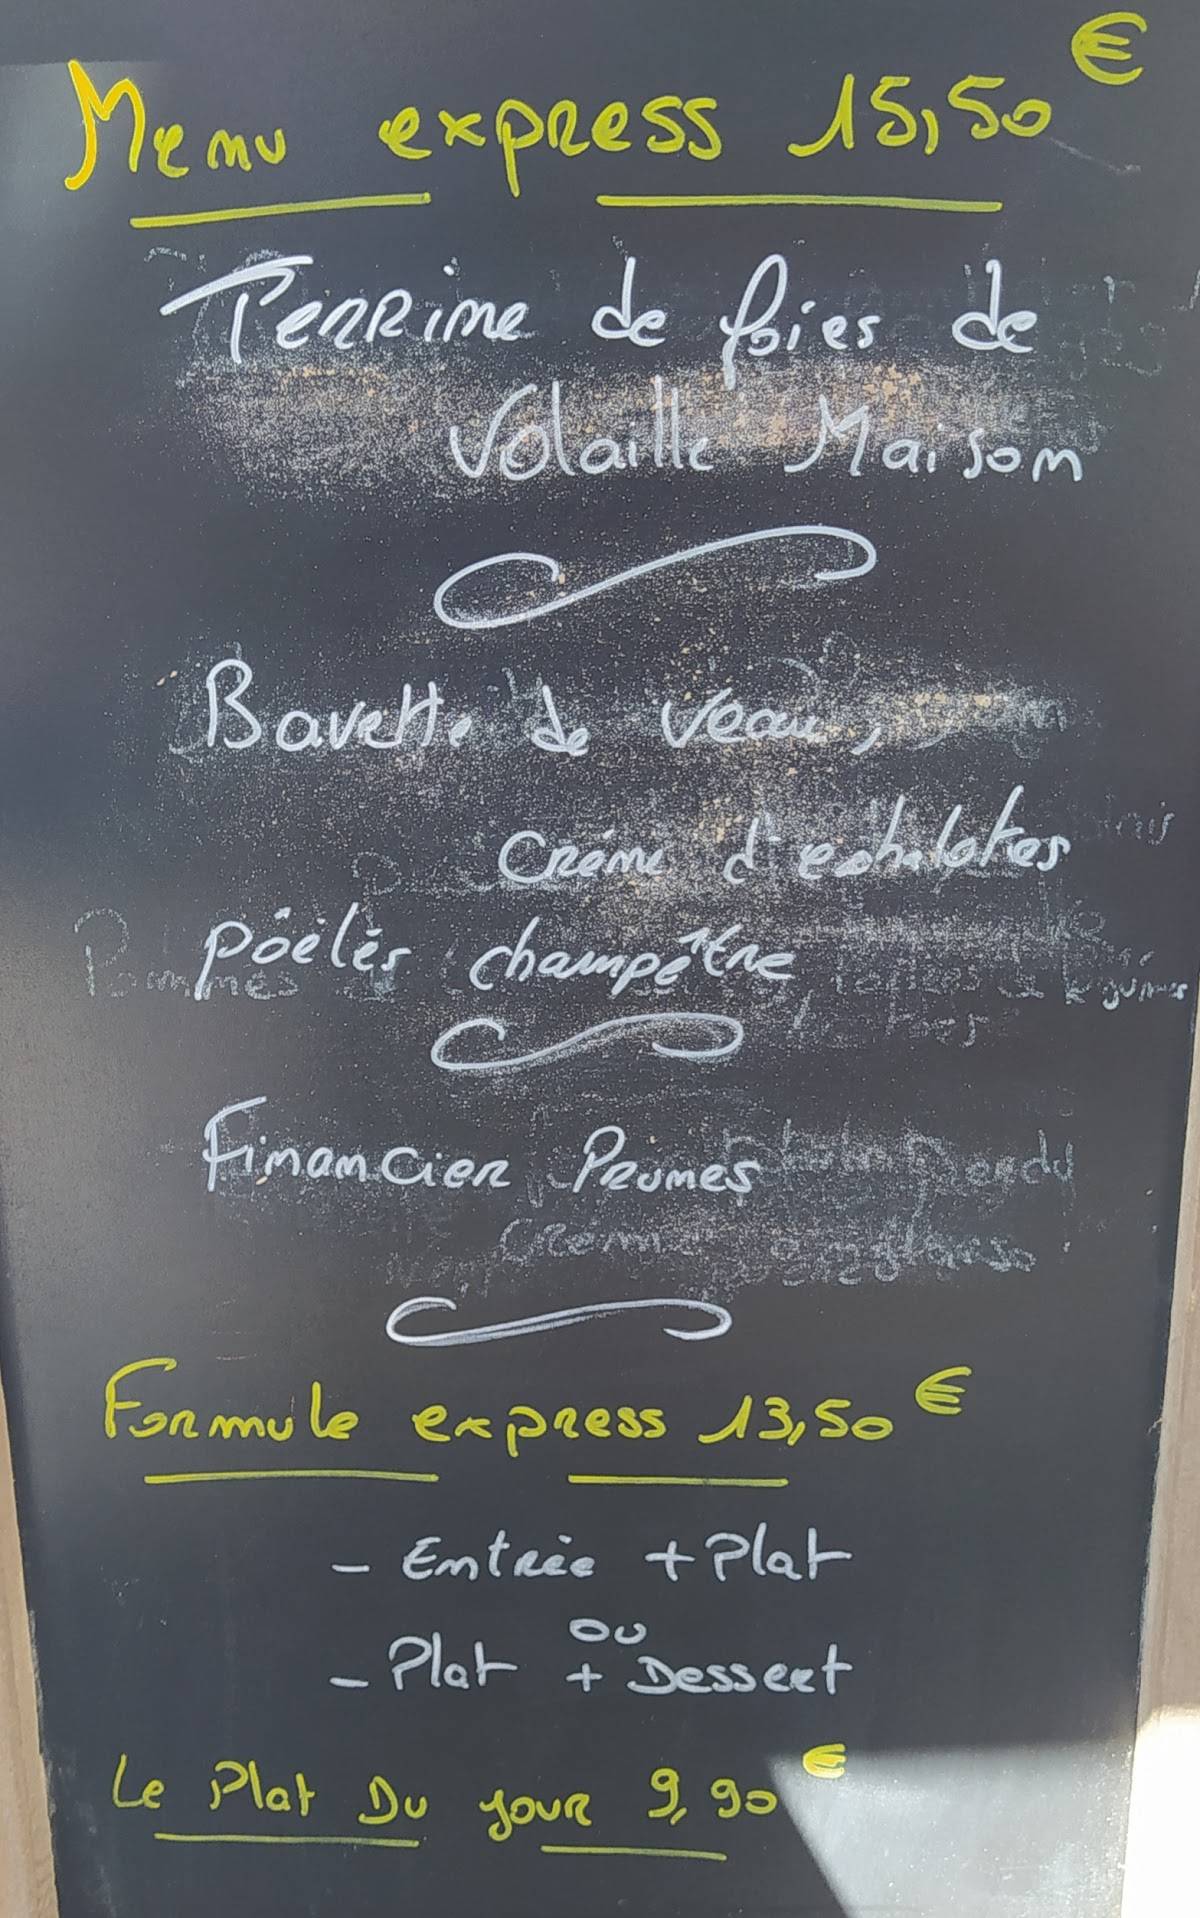 Menu express 15,50 €
Terrine de foies de
Volaille Maison
Bavette de veau,
Crème d'echalotes
pôëlés champêtre
Financier Prunes
Formule express 13,50 €
- Entrée + Plat
ou
- Plat + Dessert
Le Plat Du jour 9,90 €